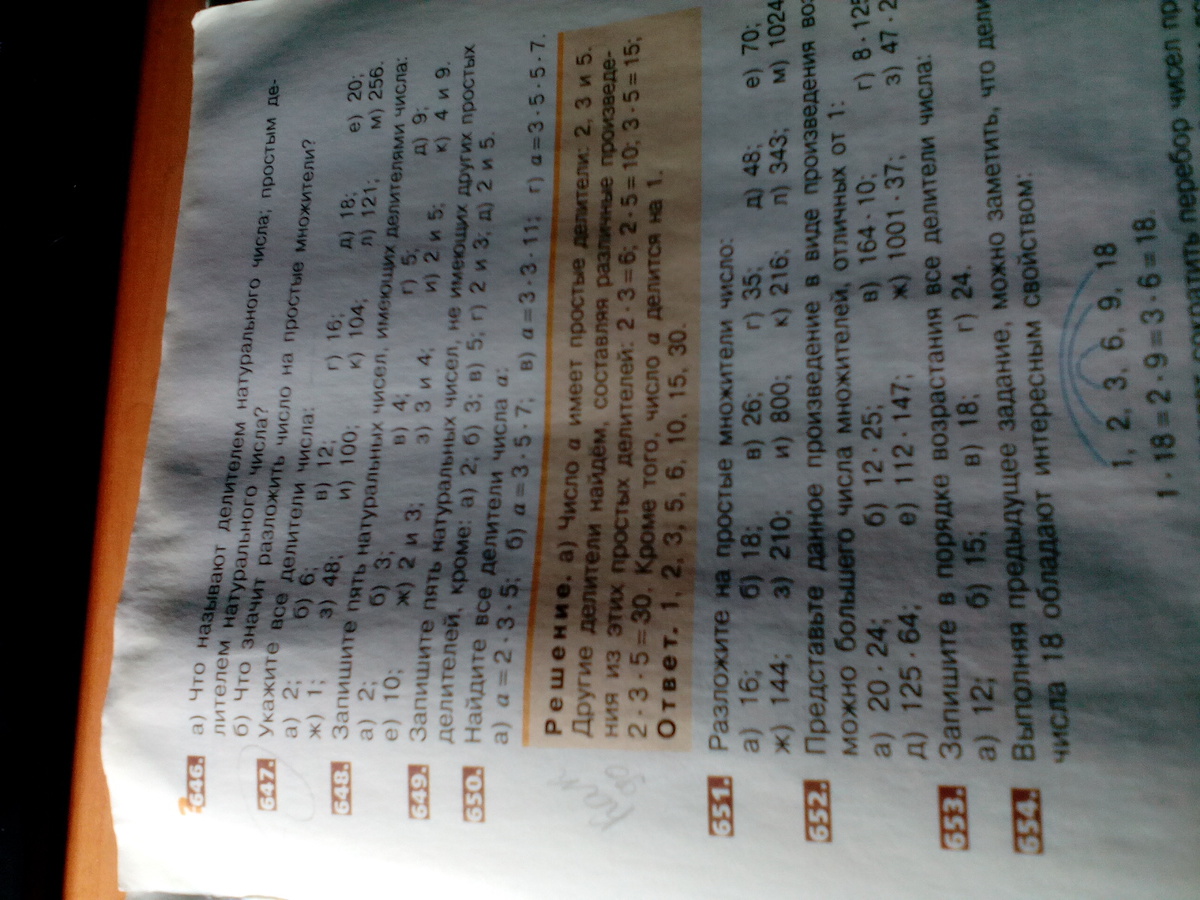 646. а) Что называют делителем натурального числа; простым де-
лителем натурального числа?
б) Что значит разложить число на простые множители?
647. Укажите все делители числа:
а) 2; б) 6; в) 12; г) 16; д) 18; е) 20;
ж) 1; з) 48; и) 100; к) 104; л) 121; м) 256.
648. Запишите пять натуральных чисел, имеющих делителями числа:
а) 2; б) 3; в) 4; г) 5; д) 9;
е) 10; ж) 2 и 3; з) 3 и 4; и) 2 и 5; к) 4 и 9.
649. Запишите пять натуральных чисел, не имеющих других простых
делителей, кроме: а) 2; б) 3; в) 5; г) 2 и 3; д) 2 и 5.
650. Найдите все делители числа a:
а) a = 2 · 3 · 5; б) a = 3 · 5 · 7; в) a = 3 · 3 · 11; г) a = 3 · 5 · 5 · 7.
Решение. а) Число a имеет простые делители: 2, 3 и 5.
Другие делители найдём, составляя различные произведе-
ния из этих простых делителей: 2 · 3 = 6; 2 · 5 = 10; 3 · 5 = 15;
2 · 3 · 5 = 30. Кроме того, число a делится на 1.
Ответ. 1, 2, 3, 5, 6, 10, 15, 30.
651. Разложите на простые множители число:
а) 16; б) 18; в) 26; г) 35; д) 48; е) 70;
ж) 144; з) 210; и) 800; к) 216; л) 343; м) 1024
652. Представьте данное произведение в виде произведения воз
можно большего числа множителей, отличных от 1:
а) 20 · 24; б) 12 · 25; в) 164 · 10; г) 8 · 125
д) 125 · 64; е) 112 · 147; ж) 1001 · 37; з) 47 · 2
653. Запишите в порядке возрастания все делители числа:
а) 12; б) 15; в) 18; г) 24.
654. Выполняя предыдущее задание, можно заметить, что дели
числа 18 обладают интересным свойством:
1, 2, 3, 6, 9, 18
1 · 18 = 2 · 9 = 3 · 6 = 18.
сократить перебор чисел пр